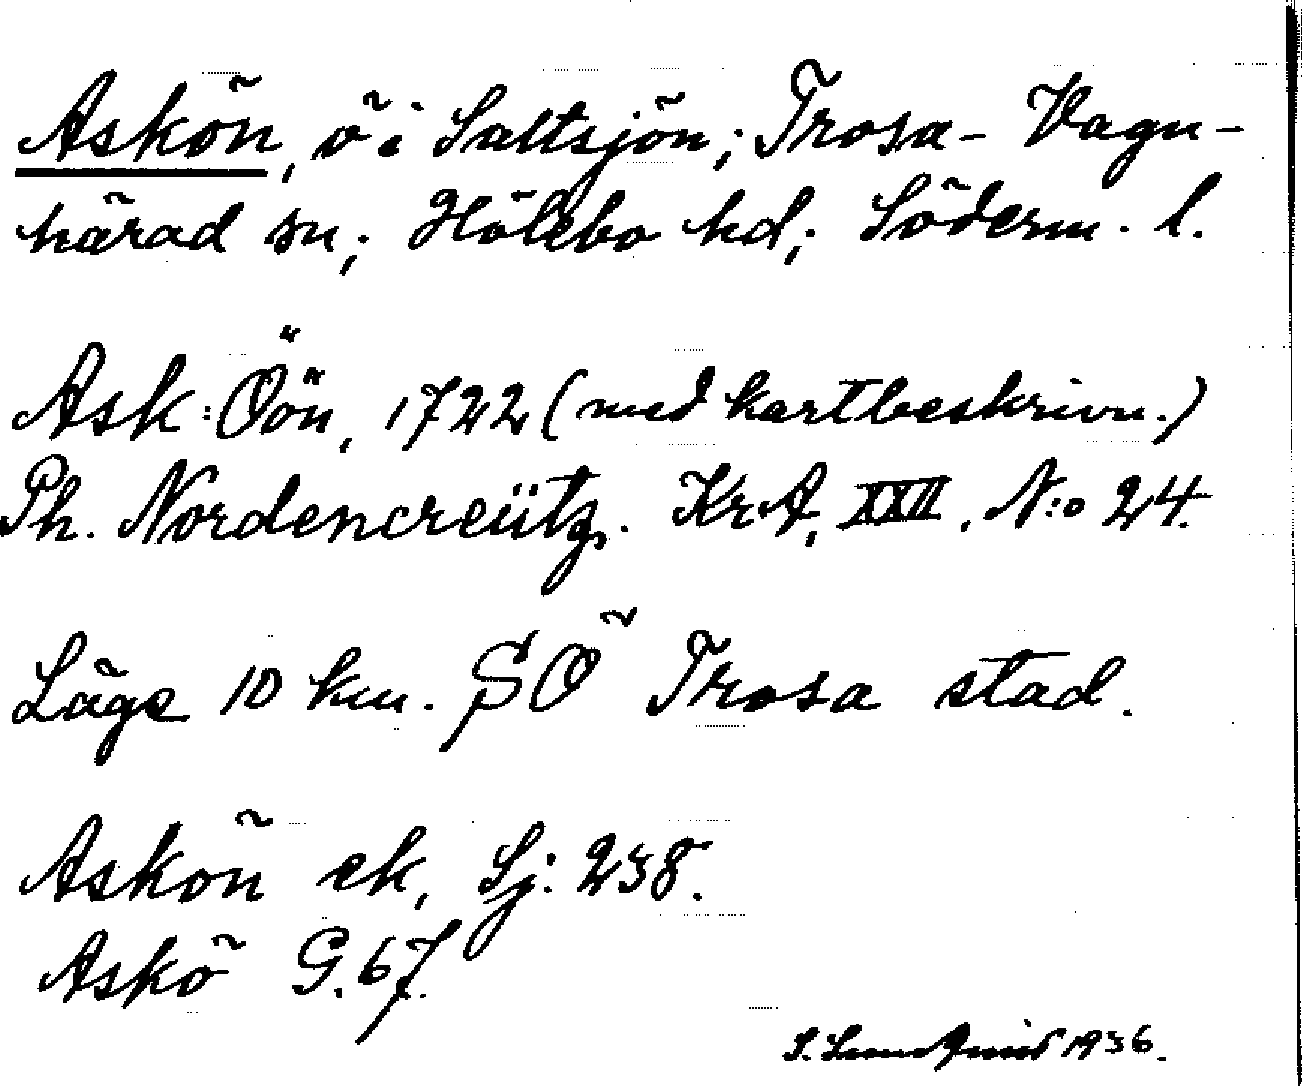 Askön, ö i Saltsjön; Trosa-Vagn-
härad sn; Hölebo hd; Söderm. l.
Ask:Öön, 1722 (med kartbeskrivn.)
Ph. Nordencreütz. KrA, XXII. N:o 24.
Läge 10 km. SÖ Trosa stad.
Askön ek, Sj: 238.
Askö G. 67.
S. Lundquist 1936.